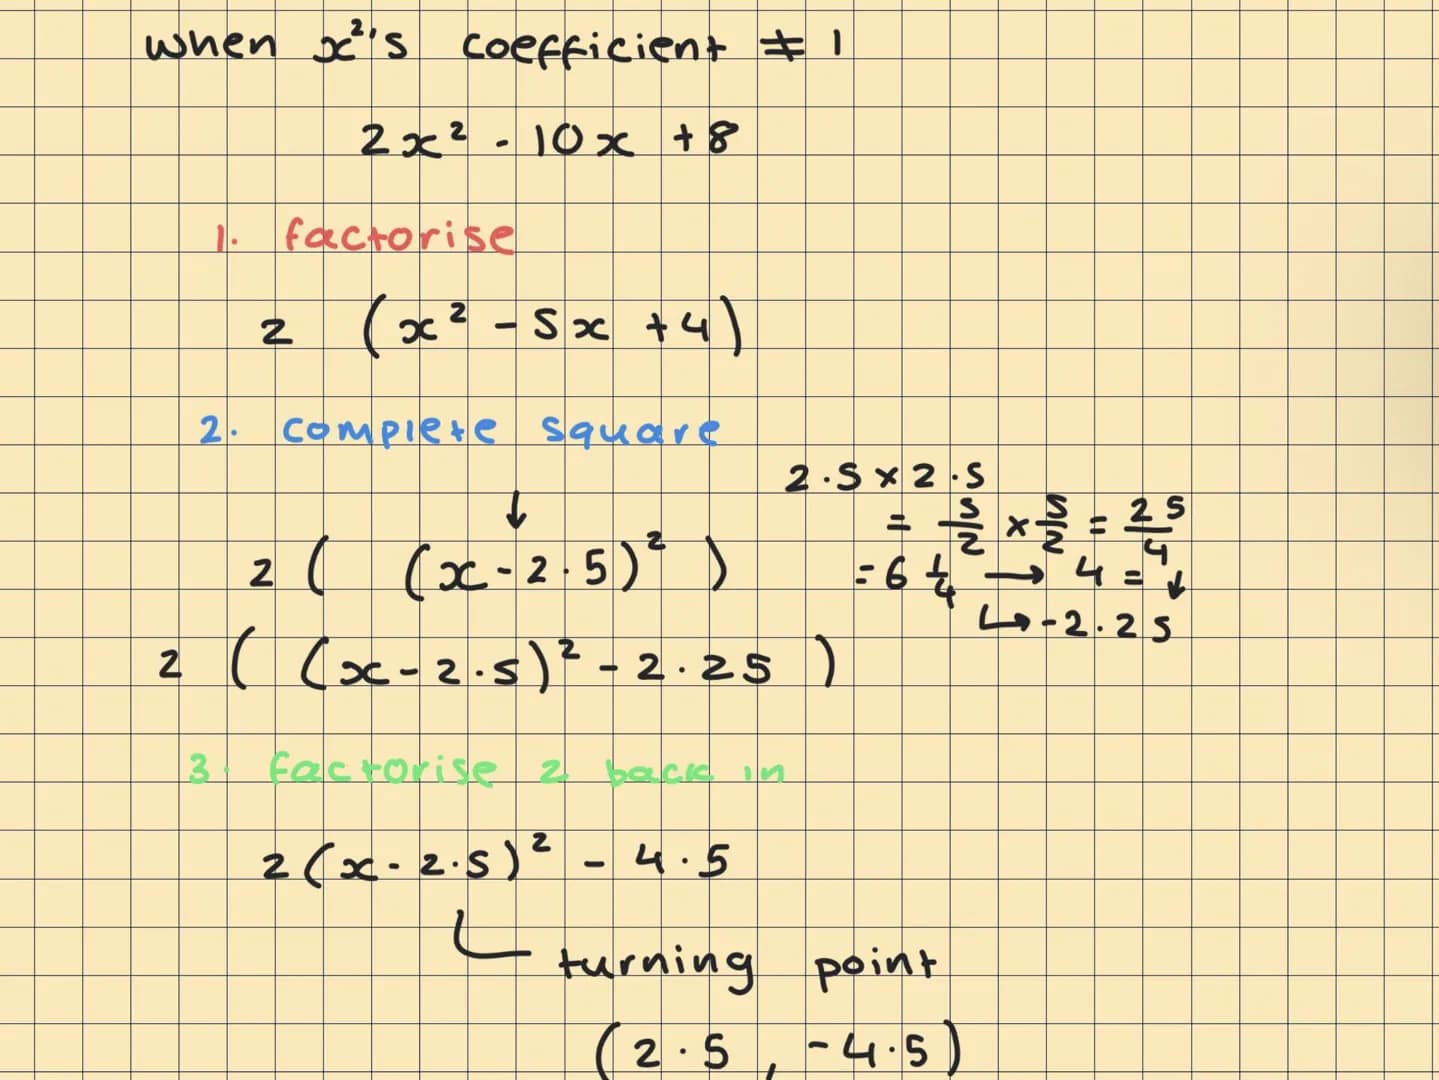 when x²'s coefficient ≠ 1
2x² - 10x + 8
1. factorise
2 (x² - 5x + 4)
2. complete square
↓
2 ( (x - 2.5)² )
2.5 × 2.5
= 5/2 × 5/2 = 25/4
= 6 1/4 → 4 = ↓
↳ -2.25
2 ( (x - 2.5)² - 2.25 )
3. factorise 2 back in
2(x - 2.5)² - 4.5
turning point
(2.5, -4.5)